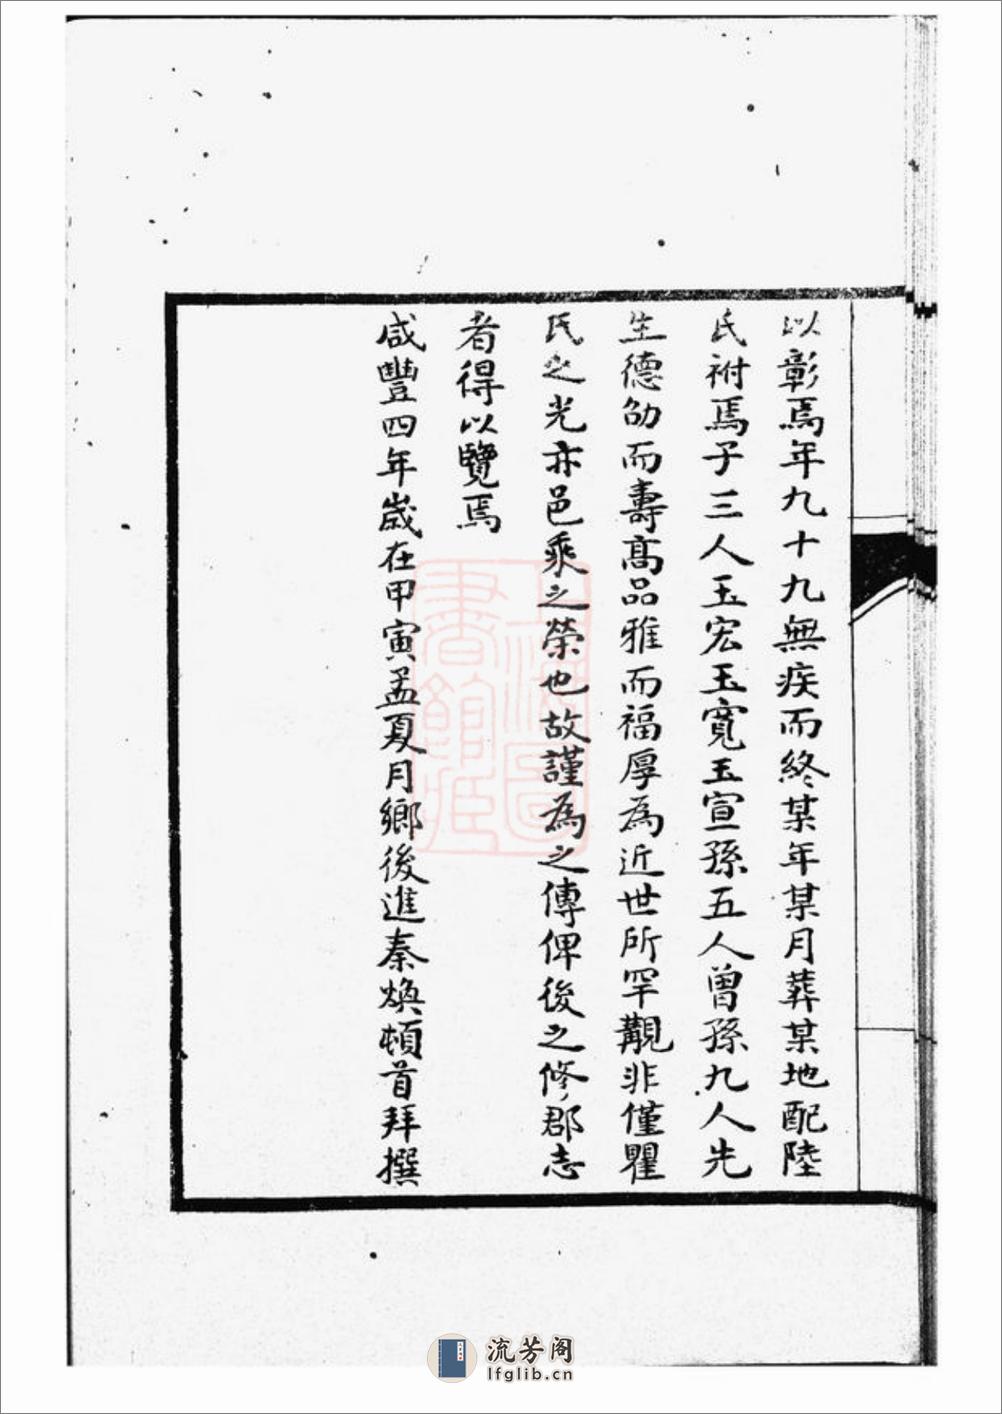 以彰焉年九十九無疾而終某年某月葬某地配陸
氏祔焉子三人玉宏玉寬玉宣孫五人曾孫九人先
生德劭而壽高品雅而福厚為近世所罕覯非僅瞿
氏之光亦邑乘之榮也故謹為之傳俾後之修郡志
者得以覽焉
咸豐四年歲在甲寅孟夏月鄉後進秦煥頓首拜撰
上海圖
書館藏
流芳阁
lfglib.cn